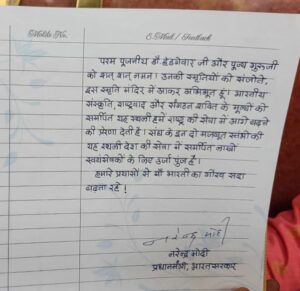 Mobile No.
E-Mail / Feedback
परम पूजनीय डॉ. हेडगेवार जी और पूज्य गुरुजी
को शत् शत् नमन। उनकी स्मृतियों को संजोते,
इस स्मृति मंदिर में आकर अभिभूत हूं। भारतीय
संस्कृति, राष्ट्रवाद और संगठन शक्ति के मूल्यों को
समर्पित यह स्थली हमें राष्ट्र की सेवा में आगे बढ़ने
की प्रेरणा देती है। संघ के इन दो मजबूत स्तंभों की
यह स्थली देश की सेवा में समर्पित लाखों
स्वयंसेवकों के लिए ऊर्जा पुंज है।
हमारे प्रयासों से माँ भारती का गौरव सदा
बढ़ता रहे!
नरेन्द्र मोदी
नरेन्द्र मोदी
प्रधानमंत्री, भारत सरकार